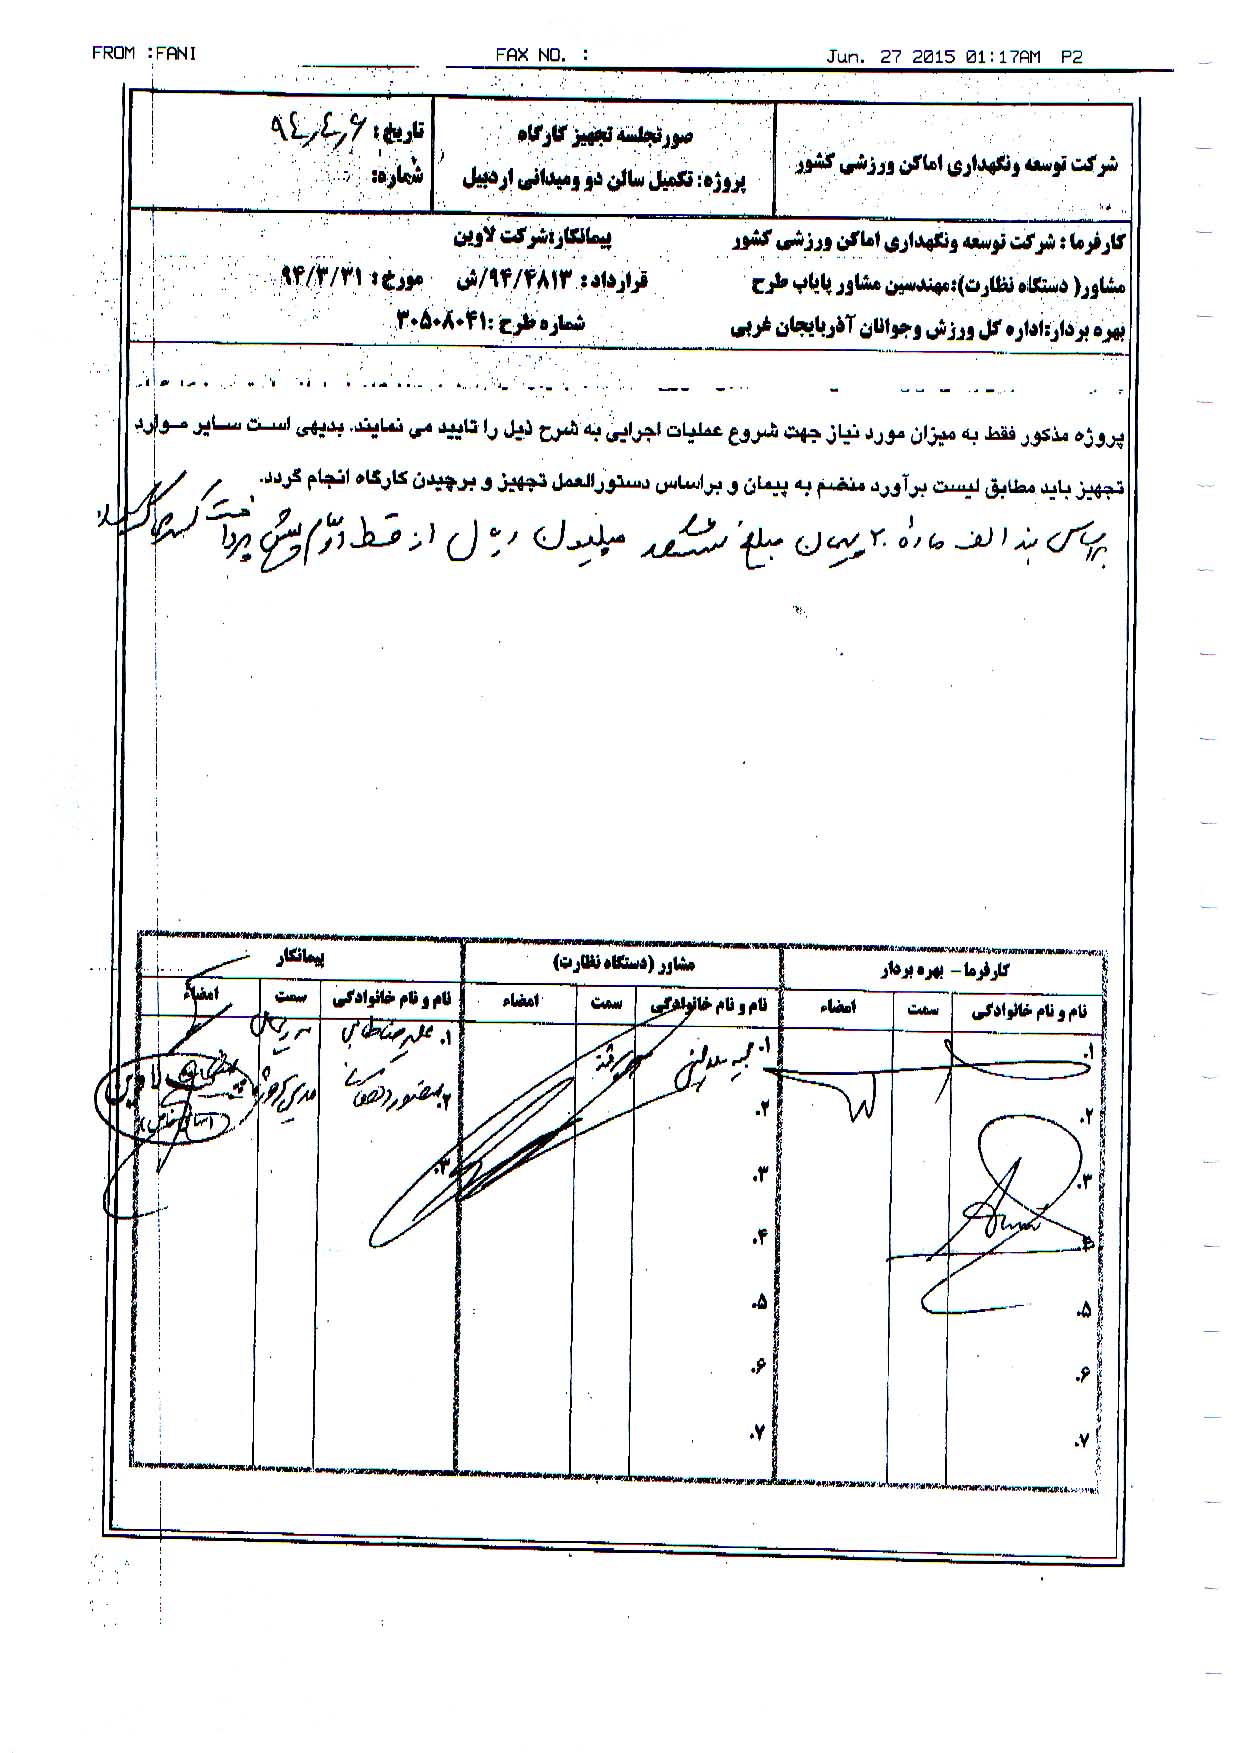 FROM :FANI FAX NO. : Jun. 27 2015 01:17AM P2
شرکت توسعه ونگهداری اماکن ورزشی کشور
صورتجلسه تجهیز کارگاه
پروژه: تکمیل سالن دو ومیدانی اردبیل
تاریخ: ۹۴,۴,۶
شماره:
کارفرما : شرکت توسعه ونگهداری اماکن ورزشی کشور پیمانکار:شرکت لاوین
مشاور( دستگاه نظارت):مهندسین مشاور پایاب طرح قرارداد: ۹۴/۴۸۱۳/ش مورخ: ۹۴/۳/۳۱
بهره بردار:اداره کل ورزش وجوانان آذربایجان غربی شماره طرح :۳۰۵۰۸۰۴۱
پروژه مذکور فقط به میزان مورد نیاز جهت شروع عملیات اجرایی به شرح ذیل را تایید می نمایند. بدیهی است سایر موارد
تجهیز باید مطابق لیست برآورد منضم به پیمان و براساس دستورالعمل تجهیز و برچیدن کارگاه انجام گردد.
براساس بند الف ماده ۲۰ پیمان مبلغ میلیون ریال از قسط دوم پیش پرداخت کسر
کارفرما – بهره بردار مشاور (دستگاه نظارت) پیمانکار
نام و نام خانوادگی سمت امضاء نام و نام خانوادگی سمت امضاء نام و نام خانوادگی سمت امضاء
۱. ۱. ۱. علیرضا
۲. ۲. ۲. منصور مدیر پروژه
۳. ۳. ۳.
۴. ۴.
۵. ۵.
۶. ۶.
۷. ۷.